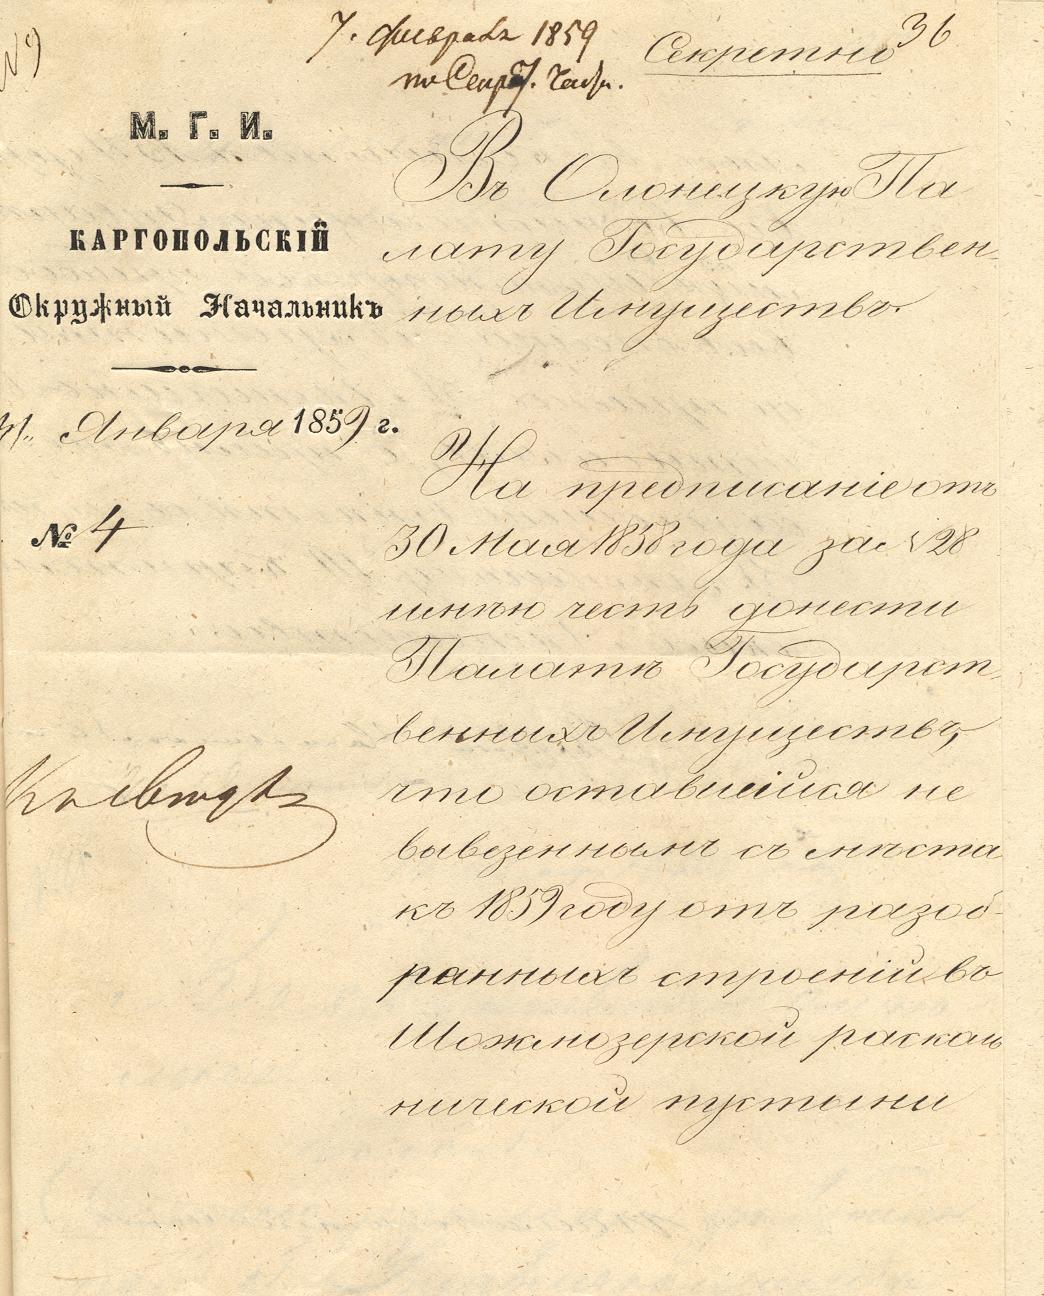 № 9
7. февраля 1859
по Секр. Части.
Секретно
36
М. Г. И.
КАРГОПОЛЬСКІЙ
Окружный Начальникъ
Января 1859 г.
№ 4
Въ Олонецкую Па
лату Государствен-
ныхъ Имуществъ.
На предписаніе отъ
30 Мая 1858 года за № 28
имѣю честь донести
Палатѣ Государст-
венныхъ Имуществъ,
что оставшійся не
вывезеннымъ съ мѣста
къ 1859 году отъ разоб-
ранныхъ строеній въ
Шожмозерской раскаль
нической пустыни